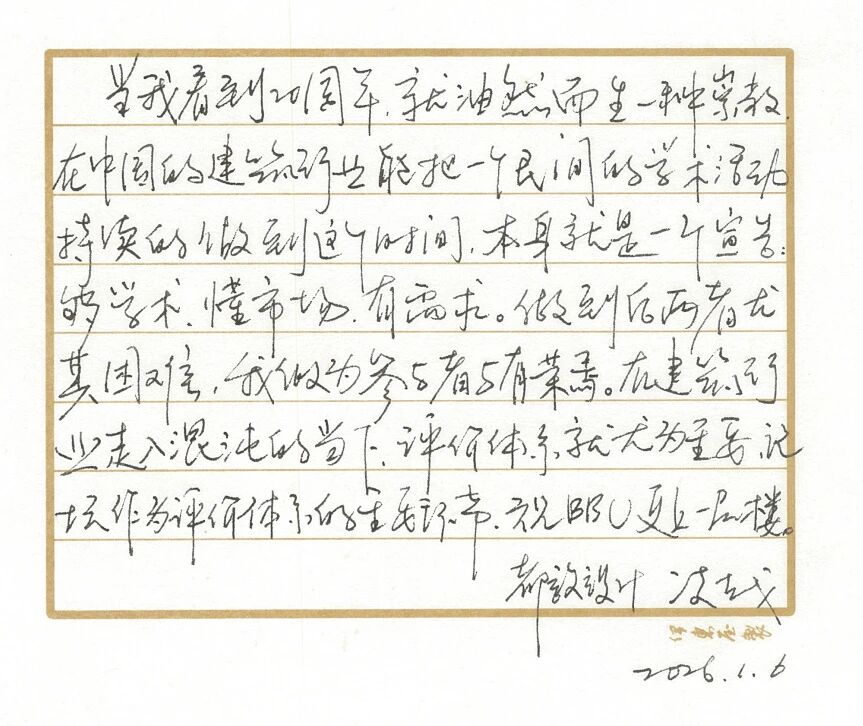 当我看到20周年,就油然而生一种崇敬.
在中国的建筑行业能把一个民间的学术活动
持续的做到这个时间,本身就是一个宣告:
够学术、懂市场、有需求。做到后两者尤
其困难,我做为参与者与有荣焉。在建筑行
业走入混沌的当下,评价体系就尤为重要,论
坛作为评价体系的重要一部分,祝BBU更上一层楼。
都设设计 凌克戈
2026.1.6